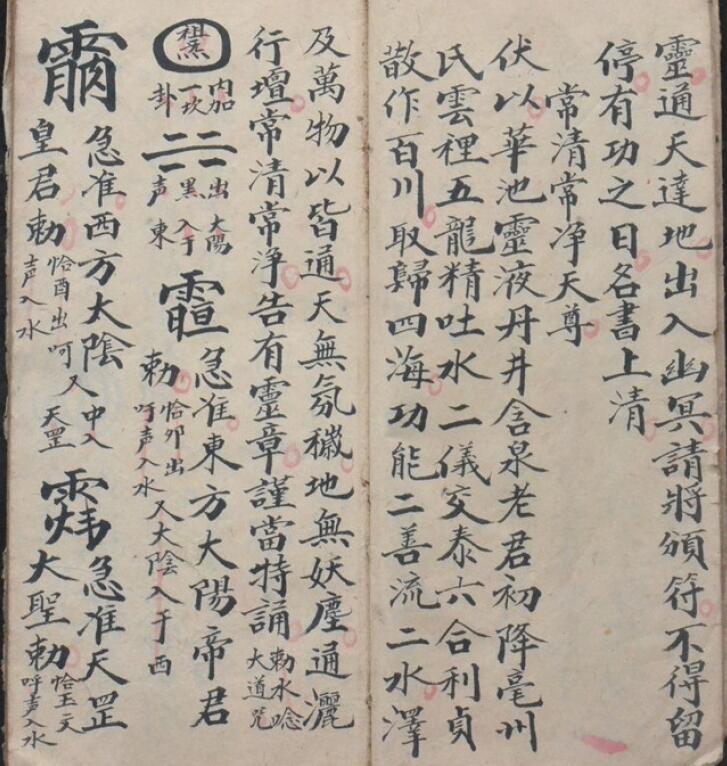 靈通天達地出入幽冥請將頒符不得留
停有功之日名書上清
常清常净天尊
伏以華池靈液丹井含泉老君初降亳州
氏雲裡五龍精吐水二儀交泰六合利貞
散作百川取歸四海功能二善流二水澤
及萬物以皆通天無氛穢地無妖塵通灑
行壇常清常淨告有靈章謹當特誦
勅水唸
大道咒
内加
一坎
卦
出太陽
黑入于
声東
急准東方太陽帝君
勅
恰卯出
呼声入水
又太陰入于西
急准西方太陰
皇君勅
恰酉出呵
声入水
又中入
天罡
急准天罡
大聖勅
恰玉文
呼声入水